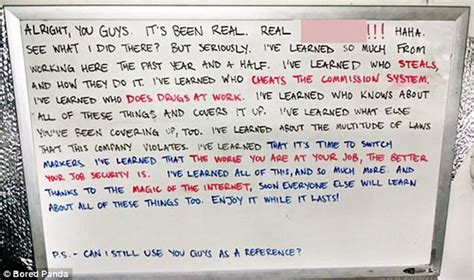 ALRIGHT, YOU GUYS. IT'S BEEN REAL. REAL !!! HAHA.
SEE WHAT I DID THERE? BUT SERIOUSLY. I'VE LEARNED SO MUCH FROM
WORKING HERE THE PAST YEAR AND A HALF. I'VE LEARNED WHO STEALS,
AND HOW THEY DO IT. I'VE LEARNED WHO CHEATS THE COMMISSION SYSTEM.
I'VE LEARNED WHO DOES DRUGS AT WORK. I'VE LEARNED WHO KNOWS ABOUT
ALL OF THESE THINGS AND COVERS IT UP. I'VE LEARNED WHAT ELSE
YOU'VE BEEN COVERING UP, TOO. I'VE LEARNED ABOUT THE MULTITUDE OF LAWS
THAT THIS COMPANY VIOLATES. I'VE LEARNED THAT IT'S TIME TO SWITCH
MARKERS. I'VE LEARNED THAT THE WORSE YOU ARE AT YOUR JOB, THE BETTER
YOUR JOB SECURITY IS. I'VE LEARNED ALL OF THIS, AND SO MUCH MORE. AND
THANKS TO THE MAGIC OF THE INTERNET, SOON EVERYONE ELSE WILL LEARN
ABOUT ALL OF THESE THINGS TOO. ENJOY IT WHILE IT LASTS!
P.S. - CAN I STILL USE YOU GUYS AS A REFERENCE?
© Bored Panda